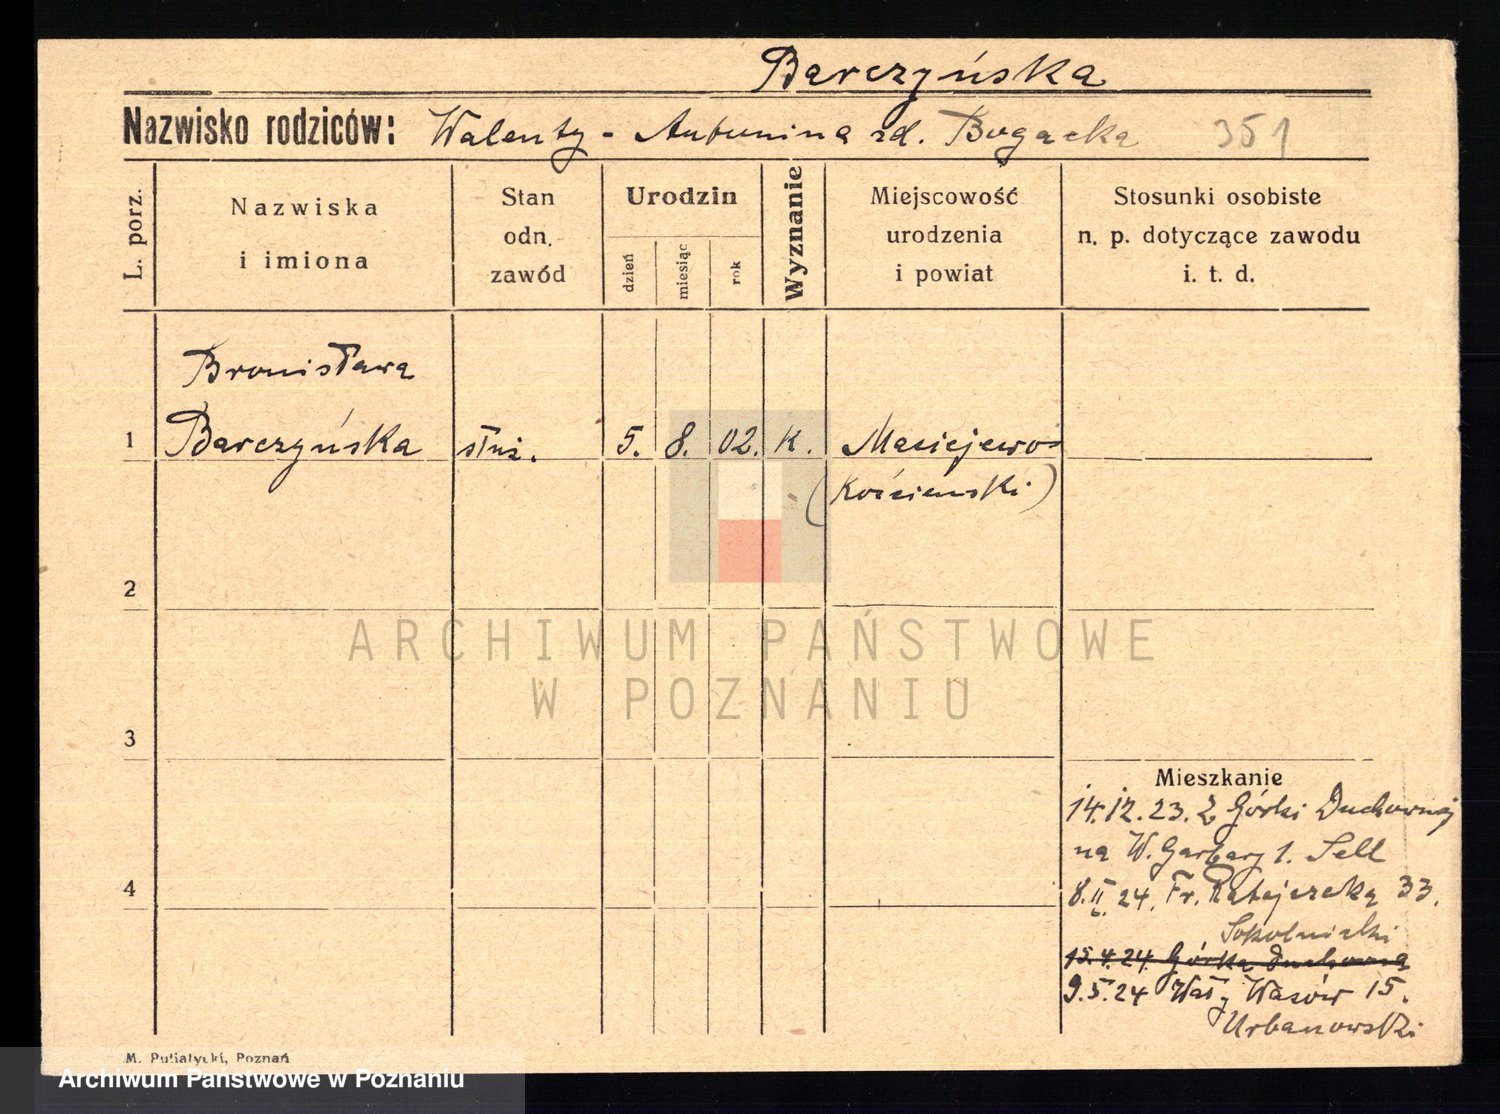 Barczyńska
Nazwisko rodziców: Walenty - Antonina zd. Bogacka 351
L. porz.
Nazwiska
i imiona
Stan
odn.
zawód
Urodzin
dzień
miesiąc
rok
Wyznanie
Miejscowość
urodzenia
i powiat
Stosunki osobiste
n. p. dotyczące zawodu
i. t. d.
Bronisława
1 Barczyńska służ. 5. 8. 02. K. Maciejewo
(Kościański)
2
ARCHIWUM PAŃSTWOWE
W POZNANIU
3
Mieszkanie
14.12.23. Z Górki Duchownej
na W. Garbary 1. Sell
4
8.II.24. Fr. Ratajczaka 33.
Sokolnicki
15.4.24. Górka Duchowna
9.5.24 Wały Wazów 15.
Urbanowski
M. Putiatycki, Poznań
Archiwum Państwowe w Poznaniu